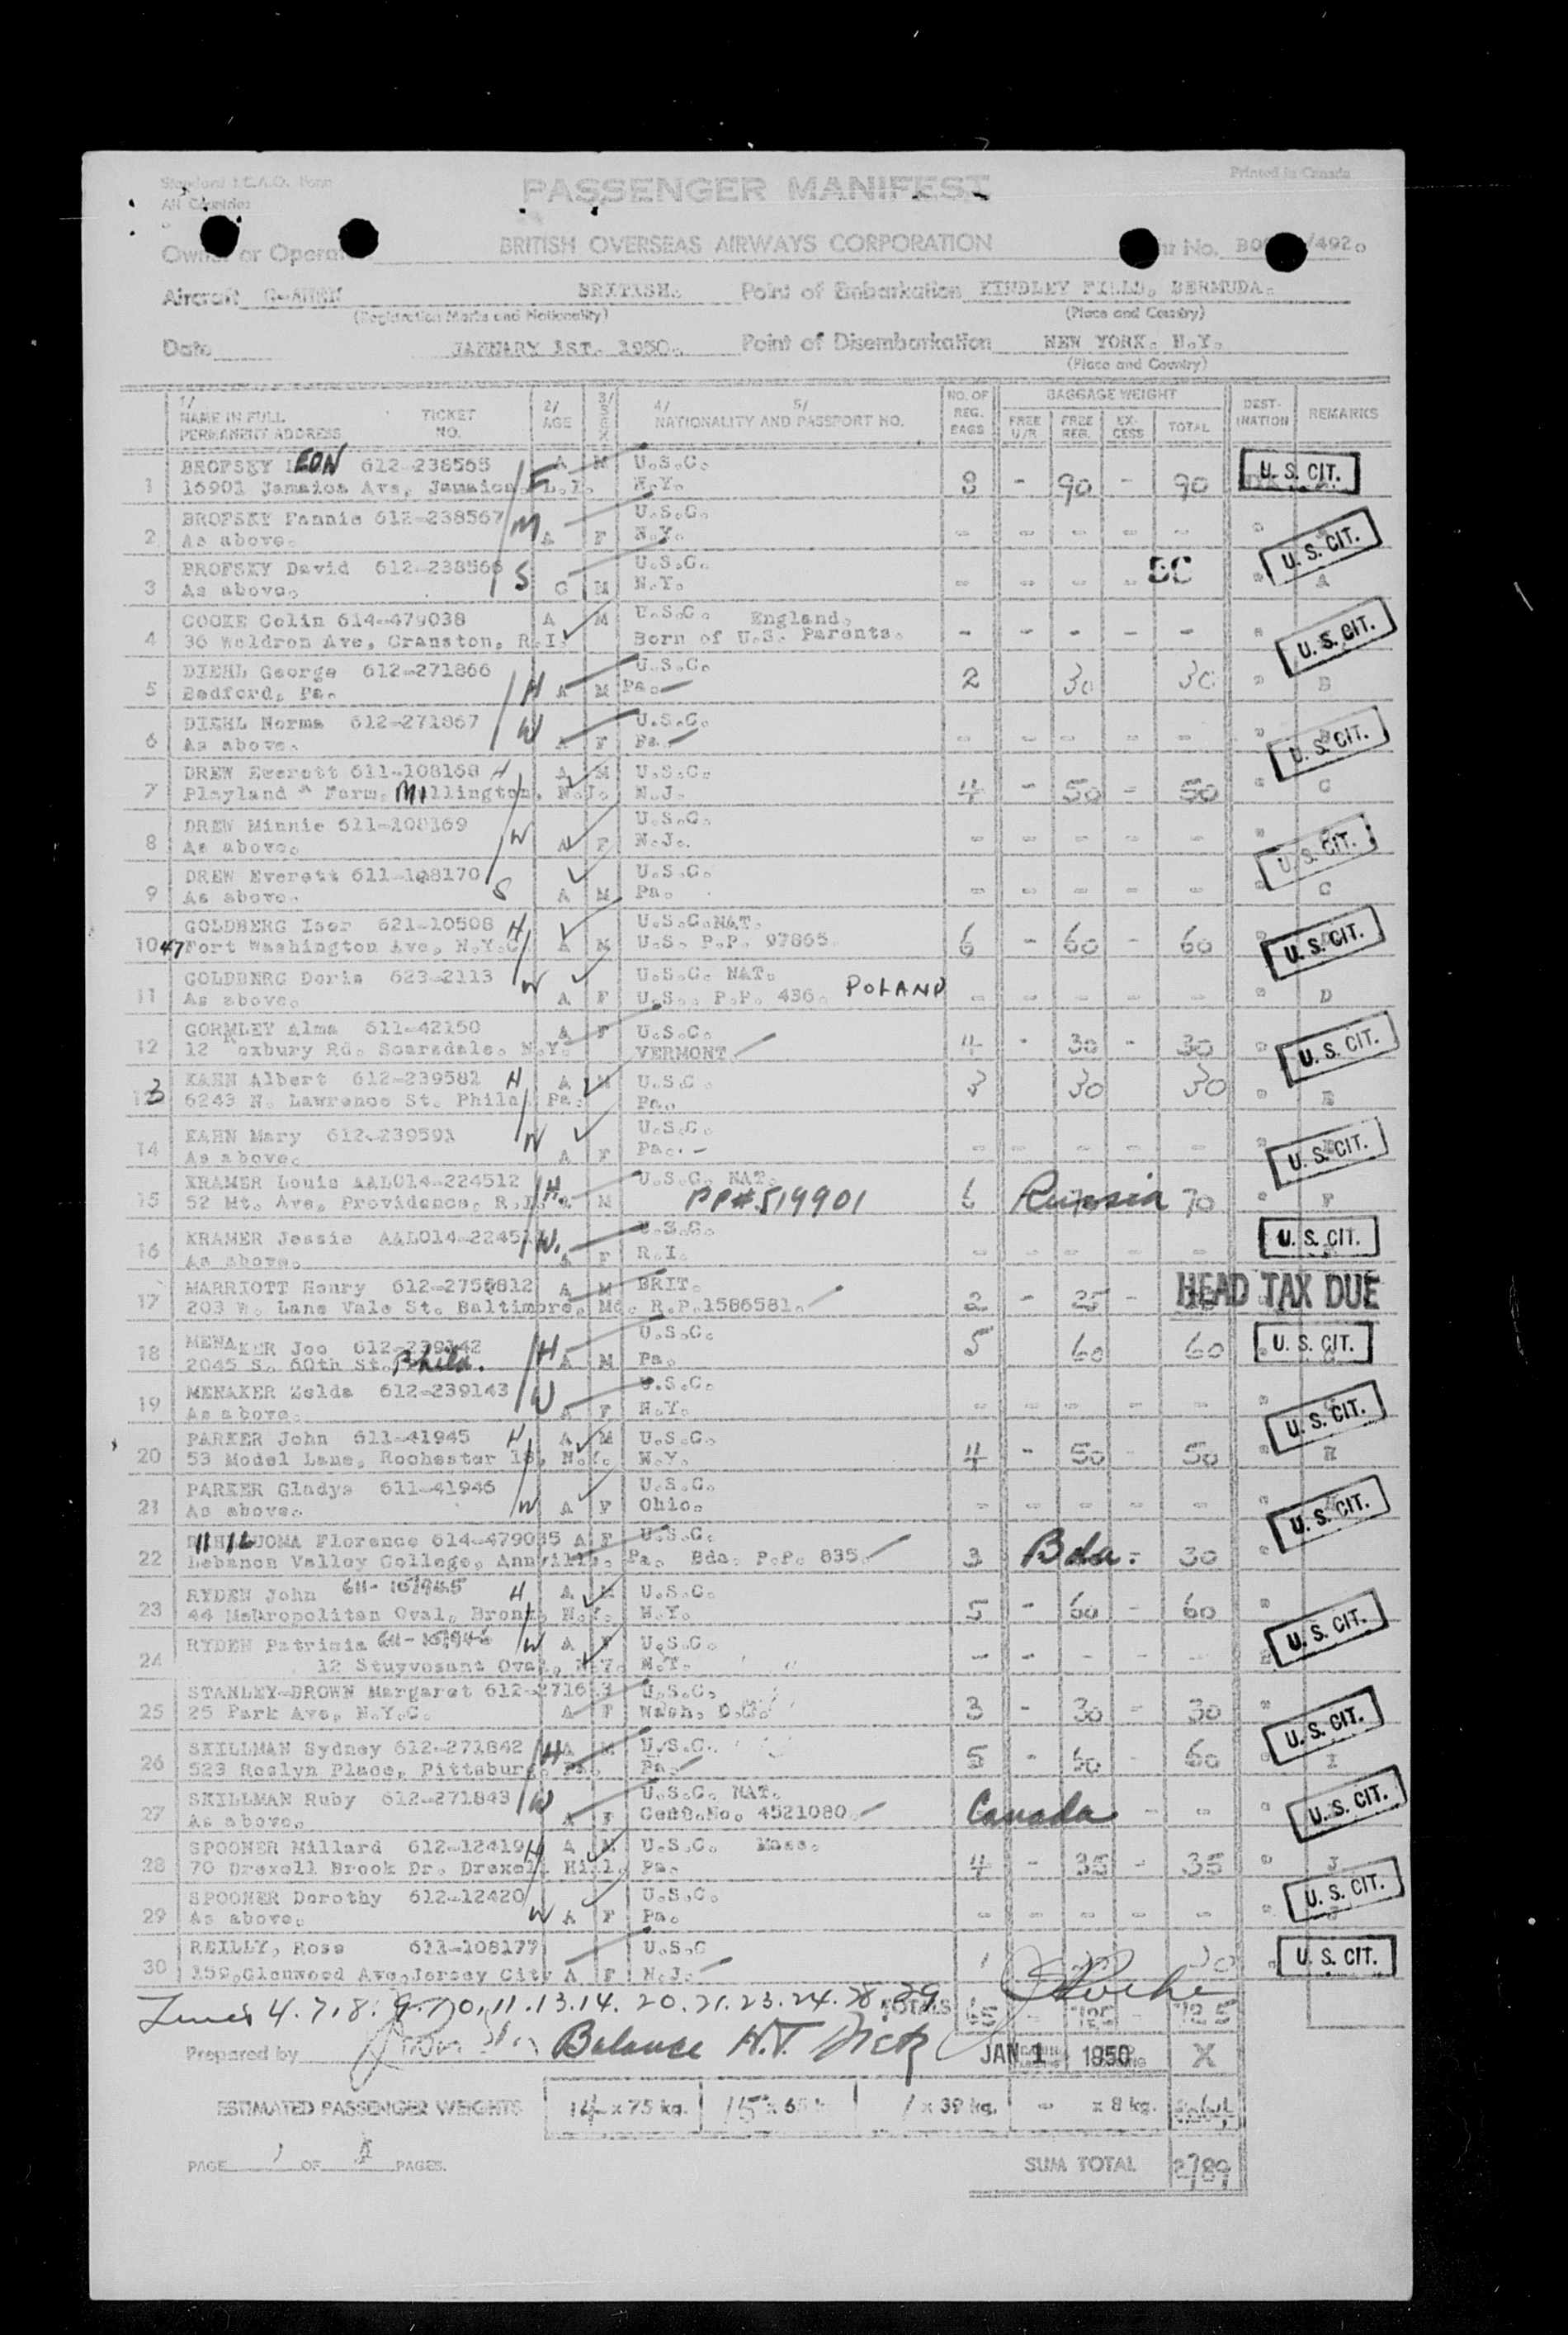 Standard I.C.A.O. Form
All Countries
Printed in Canada
PASSENGER MANIFEST
Owner or Operator BRITISH OVERSEAS AIRWAYS CORPORATION No. /492.
Aircraft BRITISH. Point of Embarkation KINDLEY FIELD, BERMUDA.
(Registration Marks and Nationality) (Place and Country)
Date JANUARY 1ST. 1950. Point of Disembarkation NEW YORK. N.Y.
(Place and Country)
1/ NAME IN FULL PERMANENT ADDRESS TICKET NO. 2/ AGE 3/ SEX 4/ 5/ NATIONALITY AND PASSPORT NO. NO. OF REG. BAGS BAGGAGE WEIGHT FREE U/R FREE REG. EX-CESS TOTAL DEST-INATION REMARKS
BROFSKY LEON 612-238565 F A M U.S.C.
1 16901 Jamaica Ave, Jamaica, L.I. N.Y. 8 - 90 - 90 U.S. CIT.
BROFSKY Fannie 612-238567 M U.S.C.
2 As above. A F N.Y. - - - - - " U.S. CIT.
BROFSKY David 612-238566 S U.S.C.
3 As above. C M N.Y. - - - - " A
COOKE Colin 614-479038 A M U.S.C. England.
4 36 Waldron Ave, Cranston, R.I. Born of U.S. Parents. - - - - - " U.S. CIT.
DIEHL George 612-271866 H U.S.C.
5 Bedford, Pa. A M Pa. 2 30 30 " B
DIEHL Norma 612-271867 W U.S.C.
6 As above. A F Pa. - - - - - " U.S. CIT.
DREW Everett 611-108168 H A M U.S.C.
7 Playland Farm, Millington, N.J. N.J. 4 - 50 - 50 " C
DREW Minnie 611-108169 W U.S.C.
8 As above. A F N.J. - - - - - " U.S. CIT.
DREW Everett 611-108170 S U.S.C.
9 As above. A M Pa. - - - - - " C
GOLDBERG Isor 621-10508 H U.S.C. NAT.
10 47 Fort Washington Ave, N.Y.C. A M U.S. P.P. 97865. 6 - 60 - 60 " U.S. CIT.
GOLDBERG Doris 623-2113 W U.S.C. NAT.
11 As above. A F U.S. P.P. 436. POLAND - - - - - " D
GORMLEY Alma 611-42150 A F U.S.C.
12 12 Roxbury Rd. Scarsdale. N.Y. VERMONT. 4 - 30 - 30 " U.S. CIT.
KAHN Albert 612-239582 H A M U.S.C.
13 6243 N. Lawrence St. Phila Pa. Pa. 3 30 30 " E
KAHN Mary 612-239591 W U.S.C.
14 As above. A F Pa. - - - - - " U.S. CIT.
KRAMER Louis AAL014-224512 H. U.S.C. NAT.
15 52 Mt. Ave, Providence, R.I. M PP#519901 6 Russia 70 " F
KRAMER Jessie W. U.S.C.
16 As above. A F R.I. - - - - - U.S. CIT.
MARRIOTT Henry A M BRIT.
17 203 W. Lane Vale St. Baltimore, Md. R.P. 1586581. 2 - 25 - HEAD TAX DUE
MENAKER Joe 612-239142 H U.S.C.
18 2045 S. 60th St. Phila. A M Pa. 5 60 60 U.S. CIT.
MENAKER Zelda 612-239143 W U.S.C.
19 As above. A F N.Y. - - - - - " U.S. CIT.
PARKER John 611-41945 H A M U.S.C.
20 53 Model Lane, Rochester 18, N.Y. N.Y. 4 - 50 - 50 " H
PARKER Gladys 611-41946 W U.S.C.
21 As above. A F Ohio. - - - - - " U.S. CIT.
Florence 614-479035 A F U.S.C.
22 Lebanon Valley College, Annville, Pa. Bda. P.P. 835. 3 Bda. - 30 "
RYDEN John H A M U.S.C.
23 44 Metropolitan Oval, Bronx, N.Y. N.Y. 5 - 60 - 60 "
RYDEN Patricia W A F U.S.C.
24 12 Stuyvesant Oval, N.Y. N.Y. - - - - - U.S. CIT.
STANLEY-BROWN Margaret U.S.C.
25 25 Park Ave, N.Y.C. A F Wash. D.C. 3 - 30 - 30 "
SKILLMAN Sydney 612-271842 H A M U.S.C.
26 523 Roslyn Place, Pittsburg, Pa. Pa. 5 - 60 - 60 " U.S. CIT. I
SKILLMAN Ruby 612-271843 W U.S.C. NAT.
27 As above. A F Cert.No. 4521080. Canada - - " U.S. CIT.
SPOONER Millard 612-12419 H A M U.S.C. Mass.
28 70 Drexell Brook Dr. Drexel Hill, Pa. 4 - 35 - 35 " J
SPOONER Dorothy 612-12420 W U.S.C.
29 As above. A F Pa. - - - - - " U.S. CIT.
REILLY, Rose 611-108177 U.S.C
30 159, Glenwood Ave, Jersey City A F N.J. 1 U.S. CIT.
Lines 4.7.8.9.10.11.13.14.20.21.23.24.28.29 TOTALS
Prepared by Balance H.T. JAN 1 1950 X
ESTIMATED PASSENGER WEIGHTS 14 x 75 kg. 15 x 65 k 1 x 39 kg. - x 8 kg.
PAGE 1 OF 1 PAGES. SUM TOTAL 2789